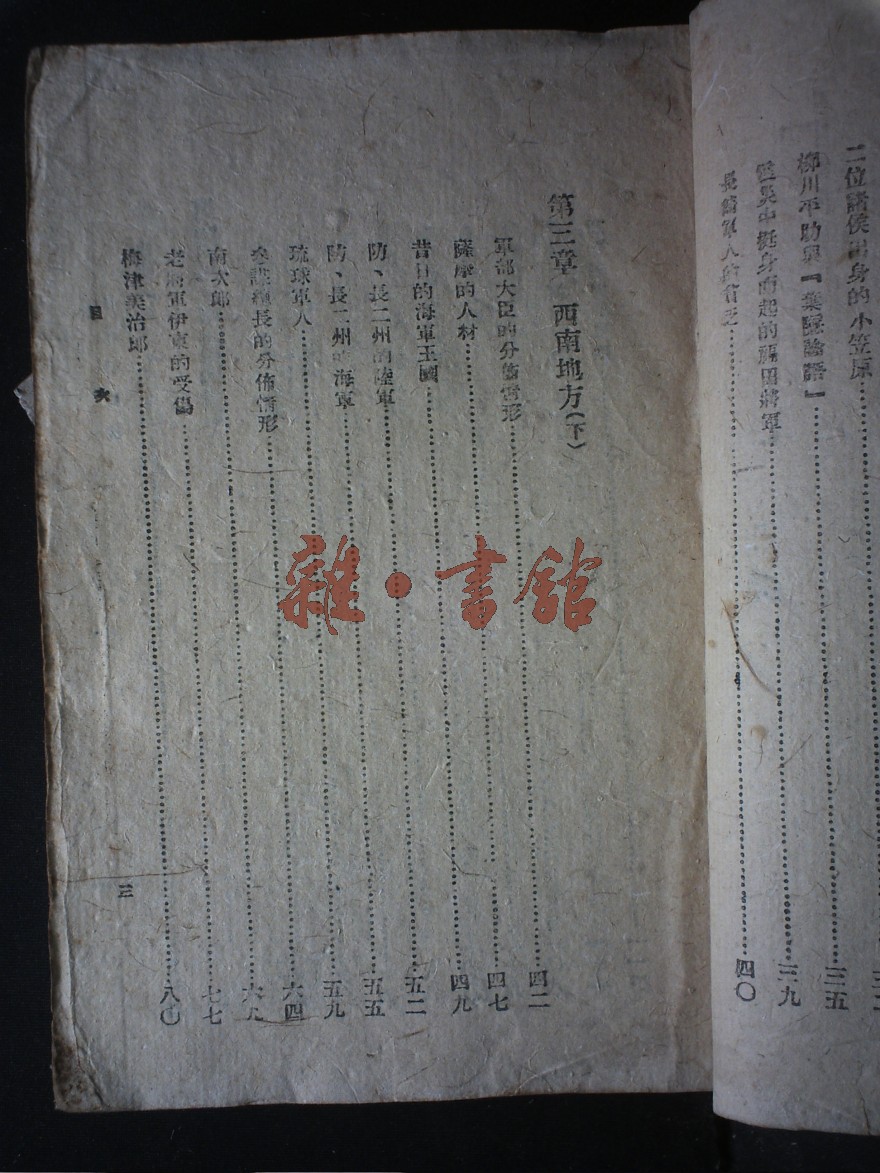 二位諸侯出身的小笠原
柳川平助與『葉隱論語』……三五
挺身而起的 田將軍……三九
長崎軍人……四〇
第三章 西南地方(下)
軍部大臣的分佈情形……四二
薩摩的人材……四七
昔日的海軍王國……四九
防、長二州的陸軍……五二
防、長二州的海軍……五五
琉球軍人……五九
參謀總長的分佈情形……六四
南次郎……六九
老海軍伊東的受傷……七七
梅津美治郎……八〇
目 次
三
雜·書館